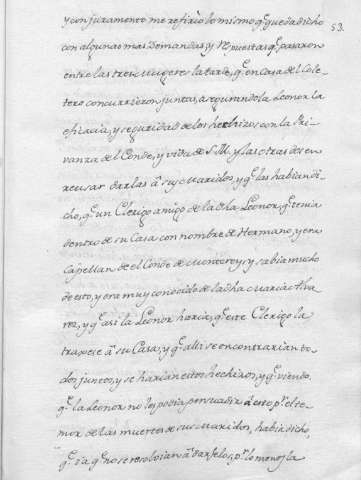 53.
y con juramento me refirio lo mismo q.e queda dicho
con algunas mas Demandas, y Respuestas q.e pasaron
entre las tres Mugeres la tarde, q.e en casa del Cole-
tero concurrieron juntas, asegurandola Leonor la
eficacia, y seguridad de los hechizos con la Pri-
vanza del Conde, y vida de S. M. y las otras des en
recusar darlas â sus Maridos, y q.e las habian di-
cho, q.e un Clerigo amigo de la dha Leonor, q.e tenia
dentro de su Casa con nombre de Hermano, y era
Capellan de el Conde de Monterey, y sabia mucho
de esto, y era muy conocido de la dha Maria Alva
rez, y q.e asi la Leonor haria, q.e este Clerigo la
traxese â su Casa, y q.e alli se encontrarian to-
dos juntos, y se harian estos hechizos, y q.e viendo
q.e la Leonor no les podia persuadir â esto p.r el te-
mor de las muertes de sus Maridos, habia dicho,
q.e ya q.e no se resolvian â darselos, p.r lo menos la